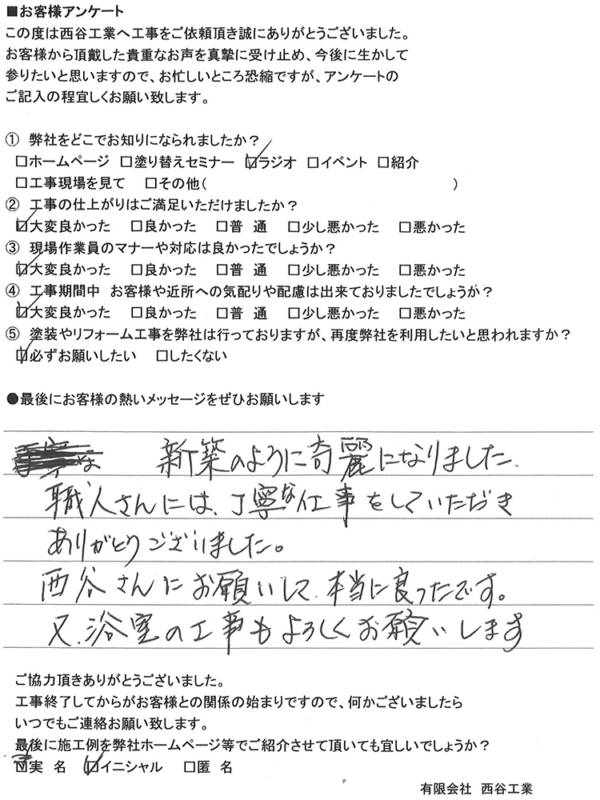 ■お客様アンケート
この度は西谷工業へ工事をご依頼頂き誠にありがとうございました。
お客様から頂戴した貴重なお声を真摯に受け止め、今後に生かして
参りたいと思いますので、お忙しいところ恐縮ですが、アンケートの
ご記入の程宜しくお願い致します。
① 弊社をどこでお知りになられましたか？
□ホームページ □塗り替えセミナー ☑ラジオ □イベント □紹介
□工事現場を見て □その他( )
② 工事の仕上がりはご満足いただけましたか？
☑大変良かった □良かった □普 通 □少し悪かった □悪かった
③ 現場作業員のマナーや対応は良かったでしょうか？
☑大変良かった □良かった □普 通 □少し悪かった □悪かった
④ 工事期間中 お客様や近所への気配りや配慮は出来ておりましたでしょうか？
☑大変良かった □良かった □普 通 □少し悪かった □悪かった
⑤ 塗装やリフォーム工事を弊社は行っておりますが、再度弊社を利用したいと思われますか？
☑必ずお願いしたい □したくない
●最後にお客様の熱いメッセージをぜひお願いします
新築のように奇麗になりました.
職人さんには、丁寧な仕事をしていただき
ありがとうございました。
西谷さんにお願いして、本当に良ったです。
又、浴室の工事もよろしくお願いします
ご協力頂きありがとうございました。
工事終了してからがお客様との関係の始まりですので、何かございましたら
いつでもご連絡お願い致します。
最後に施工例を弊社ホームページ等でご紹介させて頂いても宜しいでしょうか？
☑実 名 ☑イニシャル □匿 名
有限会社 西谷工業